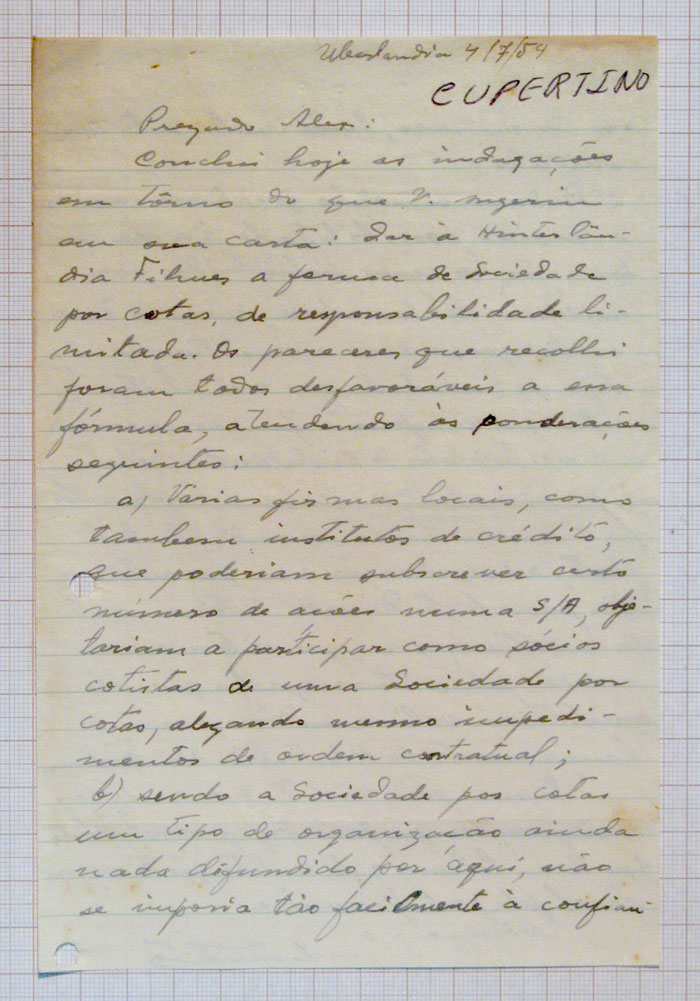 Uberlandia 4/7/54
CUPERTINO
Prezado Alex:
Conclui hoje as indagações
em tôrno do que V. sugeriu
em sua carta: dar à Hinterlân-
dia Filmes a forma de Sociedade
por cotas, de responsabilidade li-
mitada. Os pareceres que recolhi
foram todos desfavoráveis a essa
fórmula, atendendo às ponderações
seguintes:
a) Varias firmas locais, como
tambem institutos de crédito,
que poderiam subscrever certo
número de ações numa S/A, obje-
tariam a participar como sócios
cotistas de uma Sociedade por
cotas, alegando mesmo impedi-
mentos de ordem contratual;
b) sendo a Sociedade por cotas
um tipo de organização ainda
nada difundido por aqui, não
se imporia tão facilmente à confian-